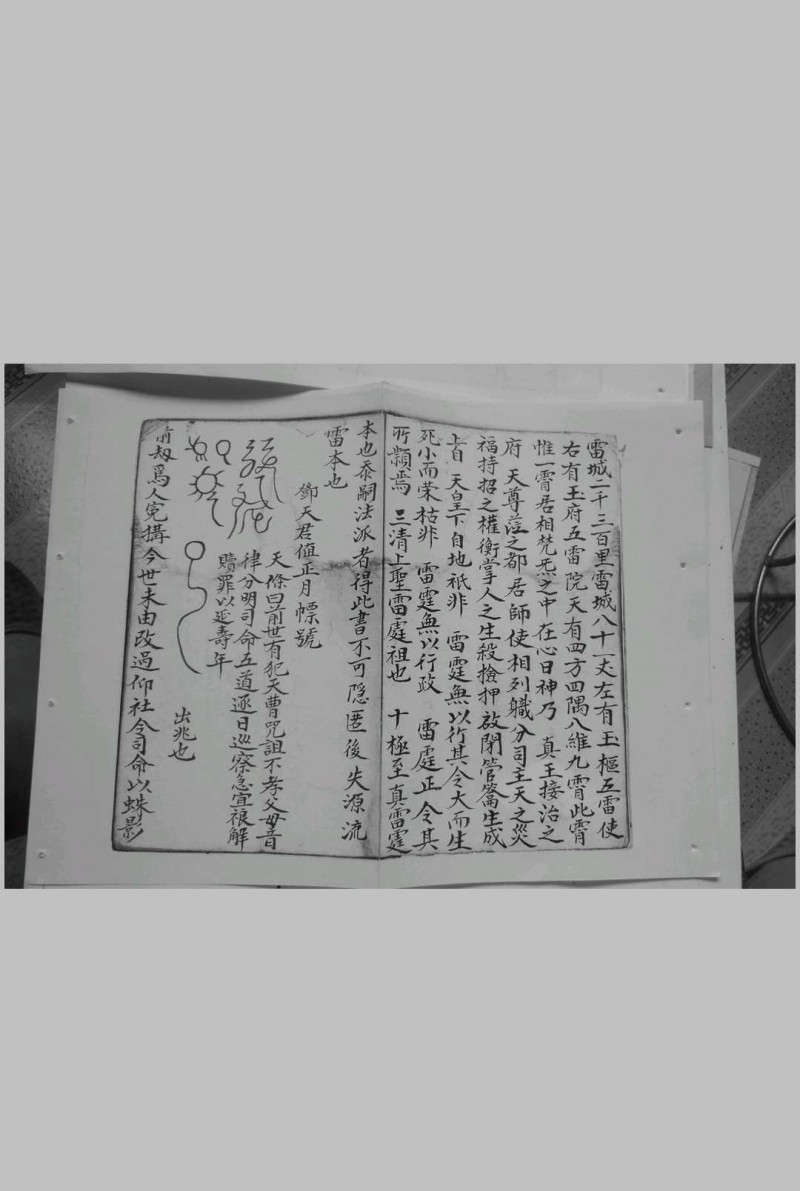 雷城二千三百里雷城八十一丈左有玉樞五雷使
右有玉府五雷院天有四方四隅八維九霄此霄
惟一霄居相梵炁之中在心曰神乃 真王接治之
府 天尊蒞之都居師使相列職分司主天之災
福持招之權衡掌人之生殺撿押啟閉管籥生成
上自 天皇下自地祇非 雷霆無以行其令大而生
死小而荣枯非 雷霆無以行政 雷霆正令其
所𩔖焉 三清上聖雷霆祖也 十極至真雷霆
本也忝嗣法派者得此書不可隱匿後失源流
雷本也
鄧天君值正月幖號
天條曰前世有犯天曹咒詛不孝父母音
律分明司命五道逐日巡察急宜禳解
贖罪以延壽年
出兆也
前劫爲人冤搆今世未由改過仰社令司命以蛛影